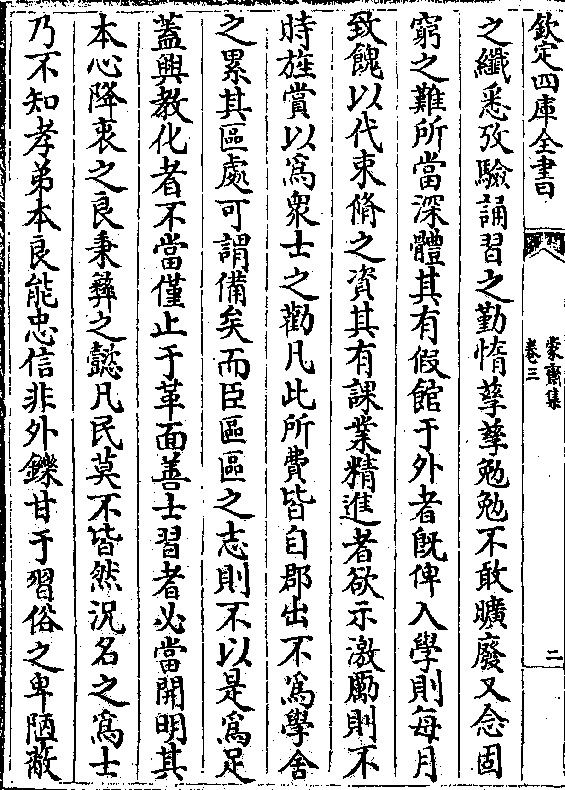 欽定四庫全書
蒙齋集
卷三
二
之纖悉攷驗誦習之勤惰孳孳勉勉不敢曠廢又念固
窮之難所當深體其有假館于外者旣俾入學則每月
致餽以代束脩之資其有課業精進者欲示激勵則不
時旌賞以爲衆士之勸凡此所費皆自郡出不爲學舍
之累其區處可謂備矣而臣區區之志則不以是爲足
蓋興教化者不當僅止于革面善士習者必當開明其
本心降衷之良秉彝之懿凡民莫不皆然況名之爲士
乃不知孝弟本良能忠信非外鑠甘于習俗之卑陋敝